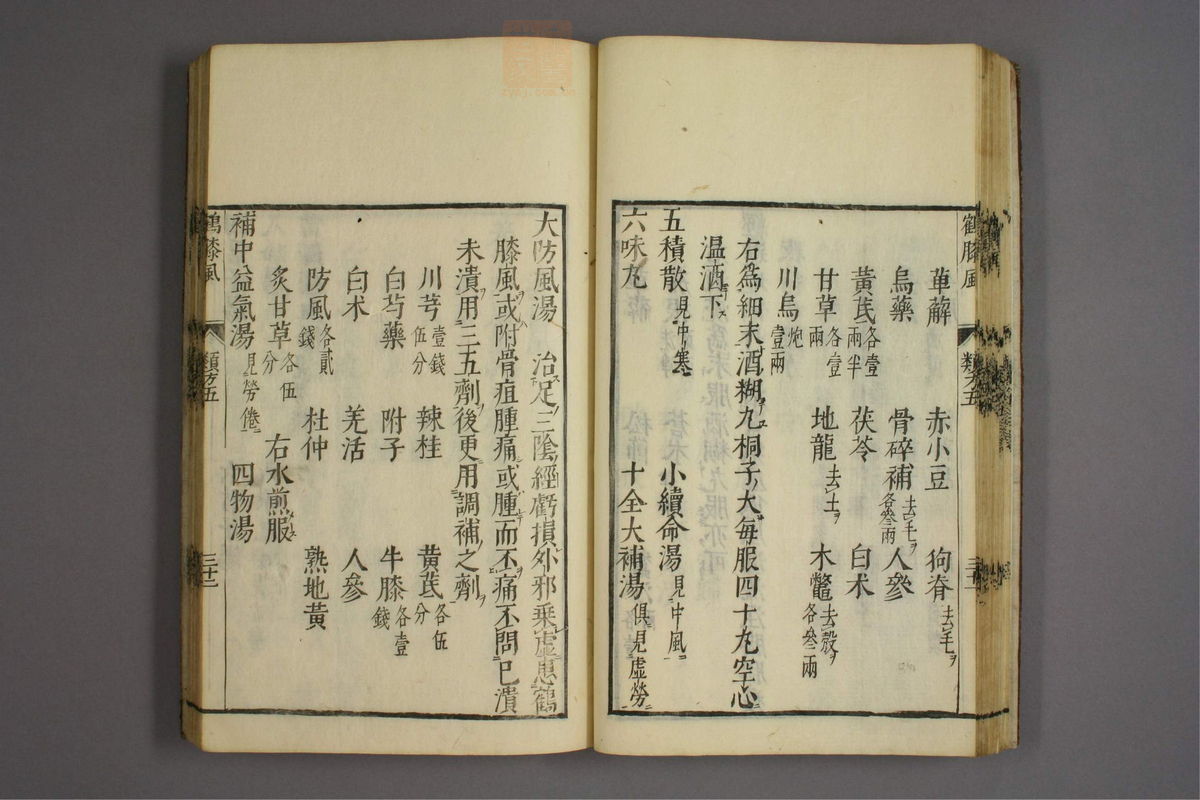 鶴膝風 類方五 三十二
萆薢 赤小豆 狗脊去毛ヲ
烏藥 骨碎補去毛ヲ各叄兩 人參
黃茋各壹兩半 茯苓 白术
甘草各壹兩 地龍去土ヲ 木鼈去殼ヲ各叄兩
川烏炮壹兩
右為細末酒糊丸桐子大每服四十丸空心
温酒下
五積散見中寒 小續命湯見中風
六味丸 十全大補湯俱見虛勞
大防風湯 治足三陰經虧損外邪乘虛患鶴
膝風或附骨疽腫痛或腫而不痛不問已潰
未潰用三五劑後更用調補之劑
川芎壹錢伍分 辣桂 黃茋各伍分
白芍藥 附子 牛膝各壹錢
白术 羌活 人參
防風各貳錢 杜仲 熟地黃
炙甘草各伍分 右水煎服
補中益氣湯見勞倦 四物湯
鶴膝風 類方五 三十二